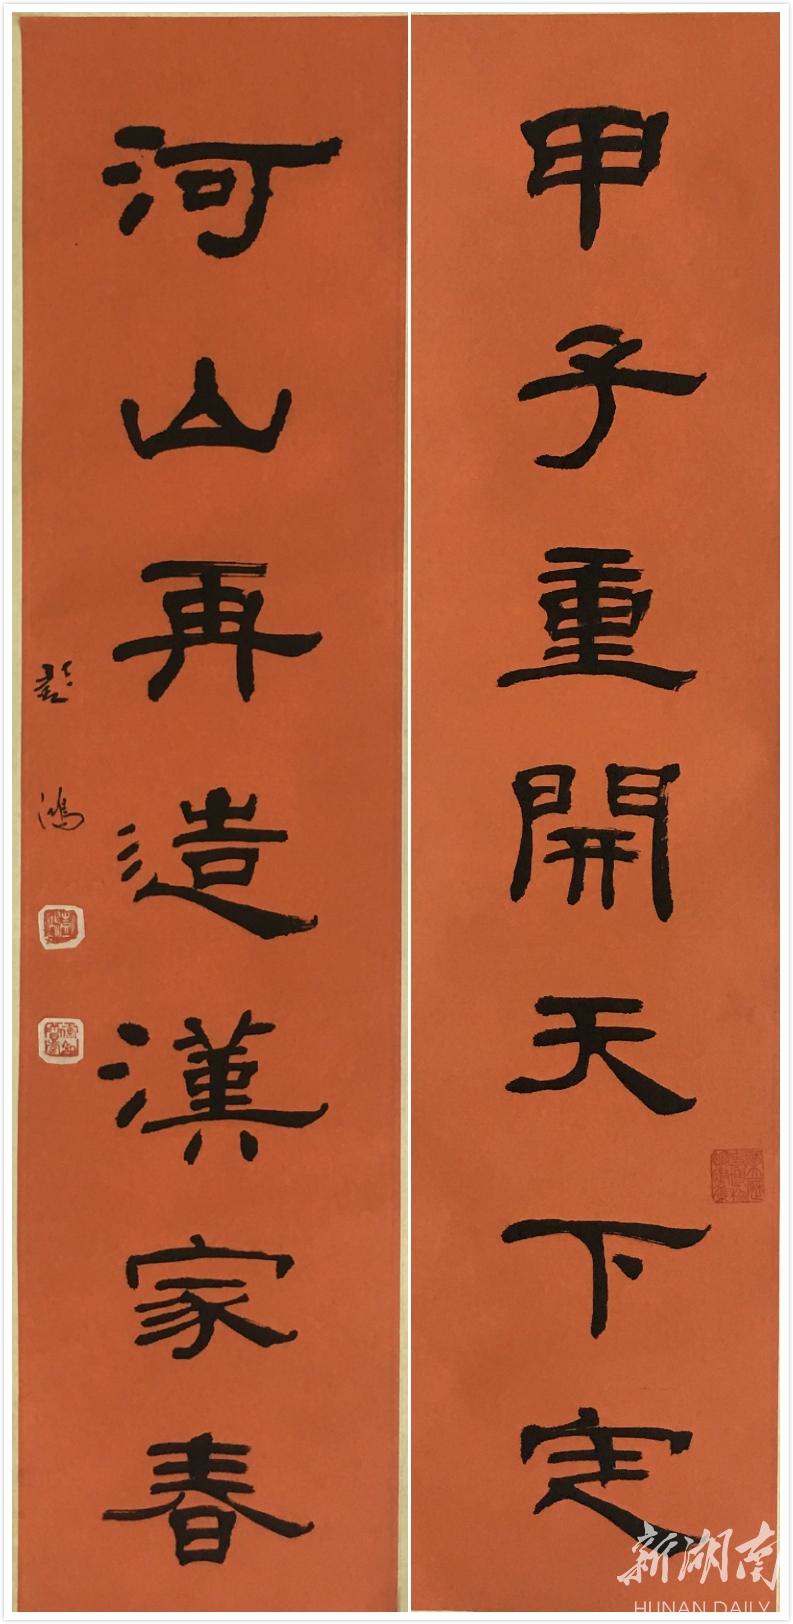 甲子重開天下定
河山再造漢家春
彭鴻
新湖南
HUNAN DAILY